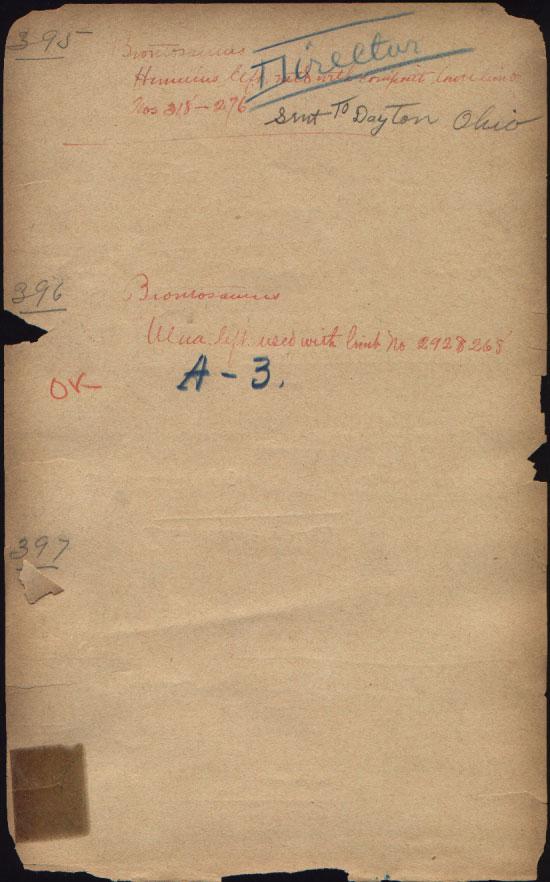 395
Brontosaurus
Director
Humerus left, used with composit
Nos 318-276
Sent To Dayton Ohio
396
Brontosaurus
Ulna left used with limb No 292 & 265
OK
A-3.
397